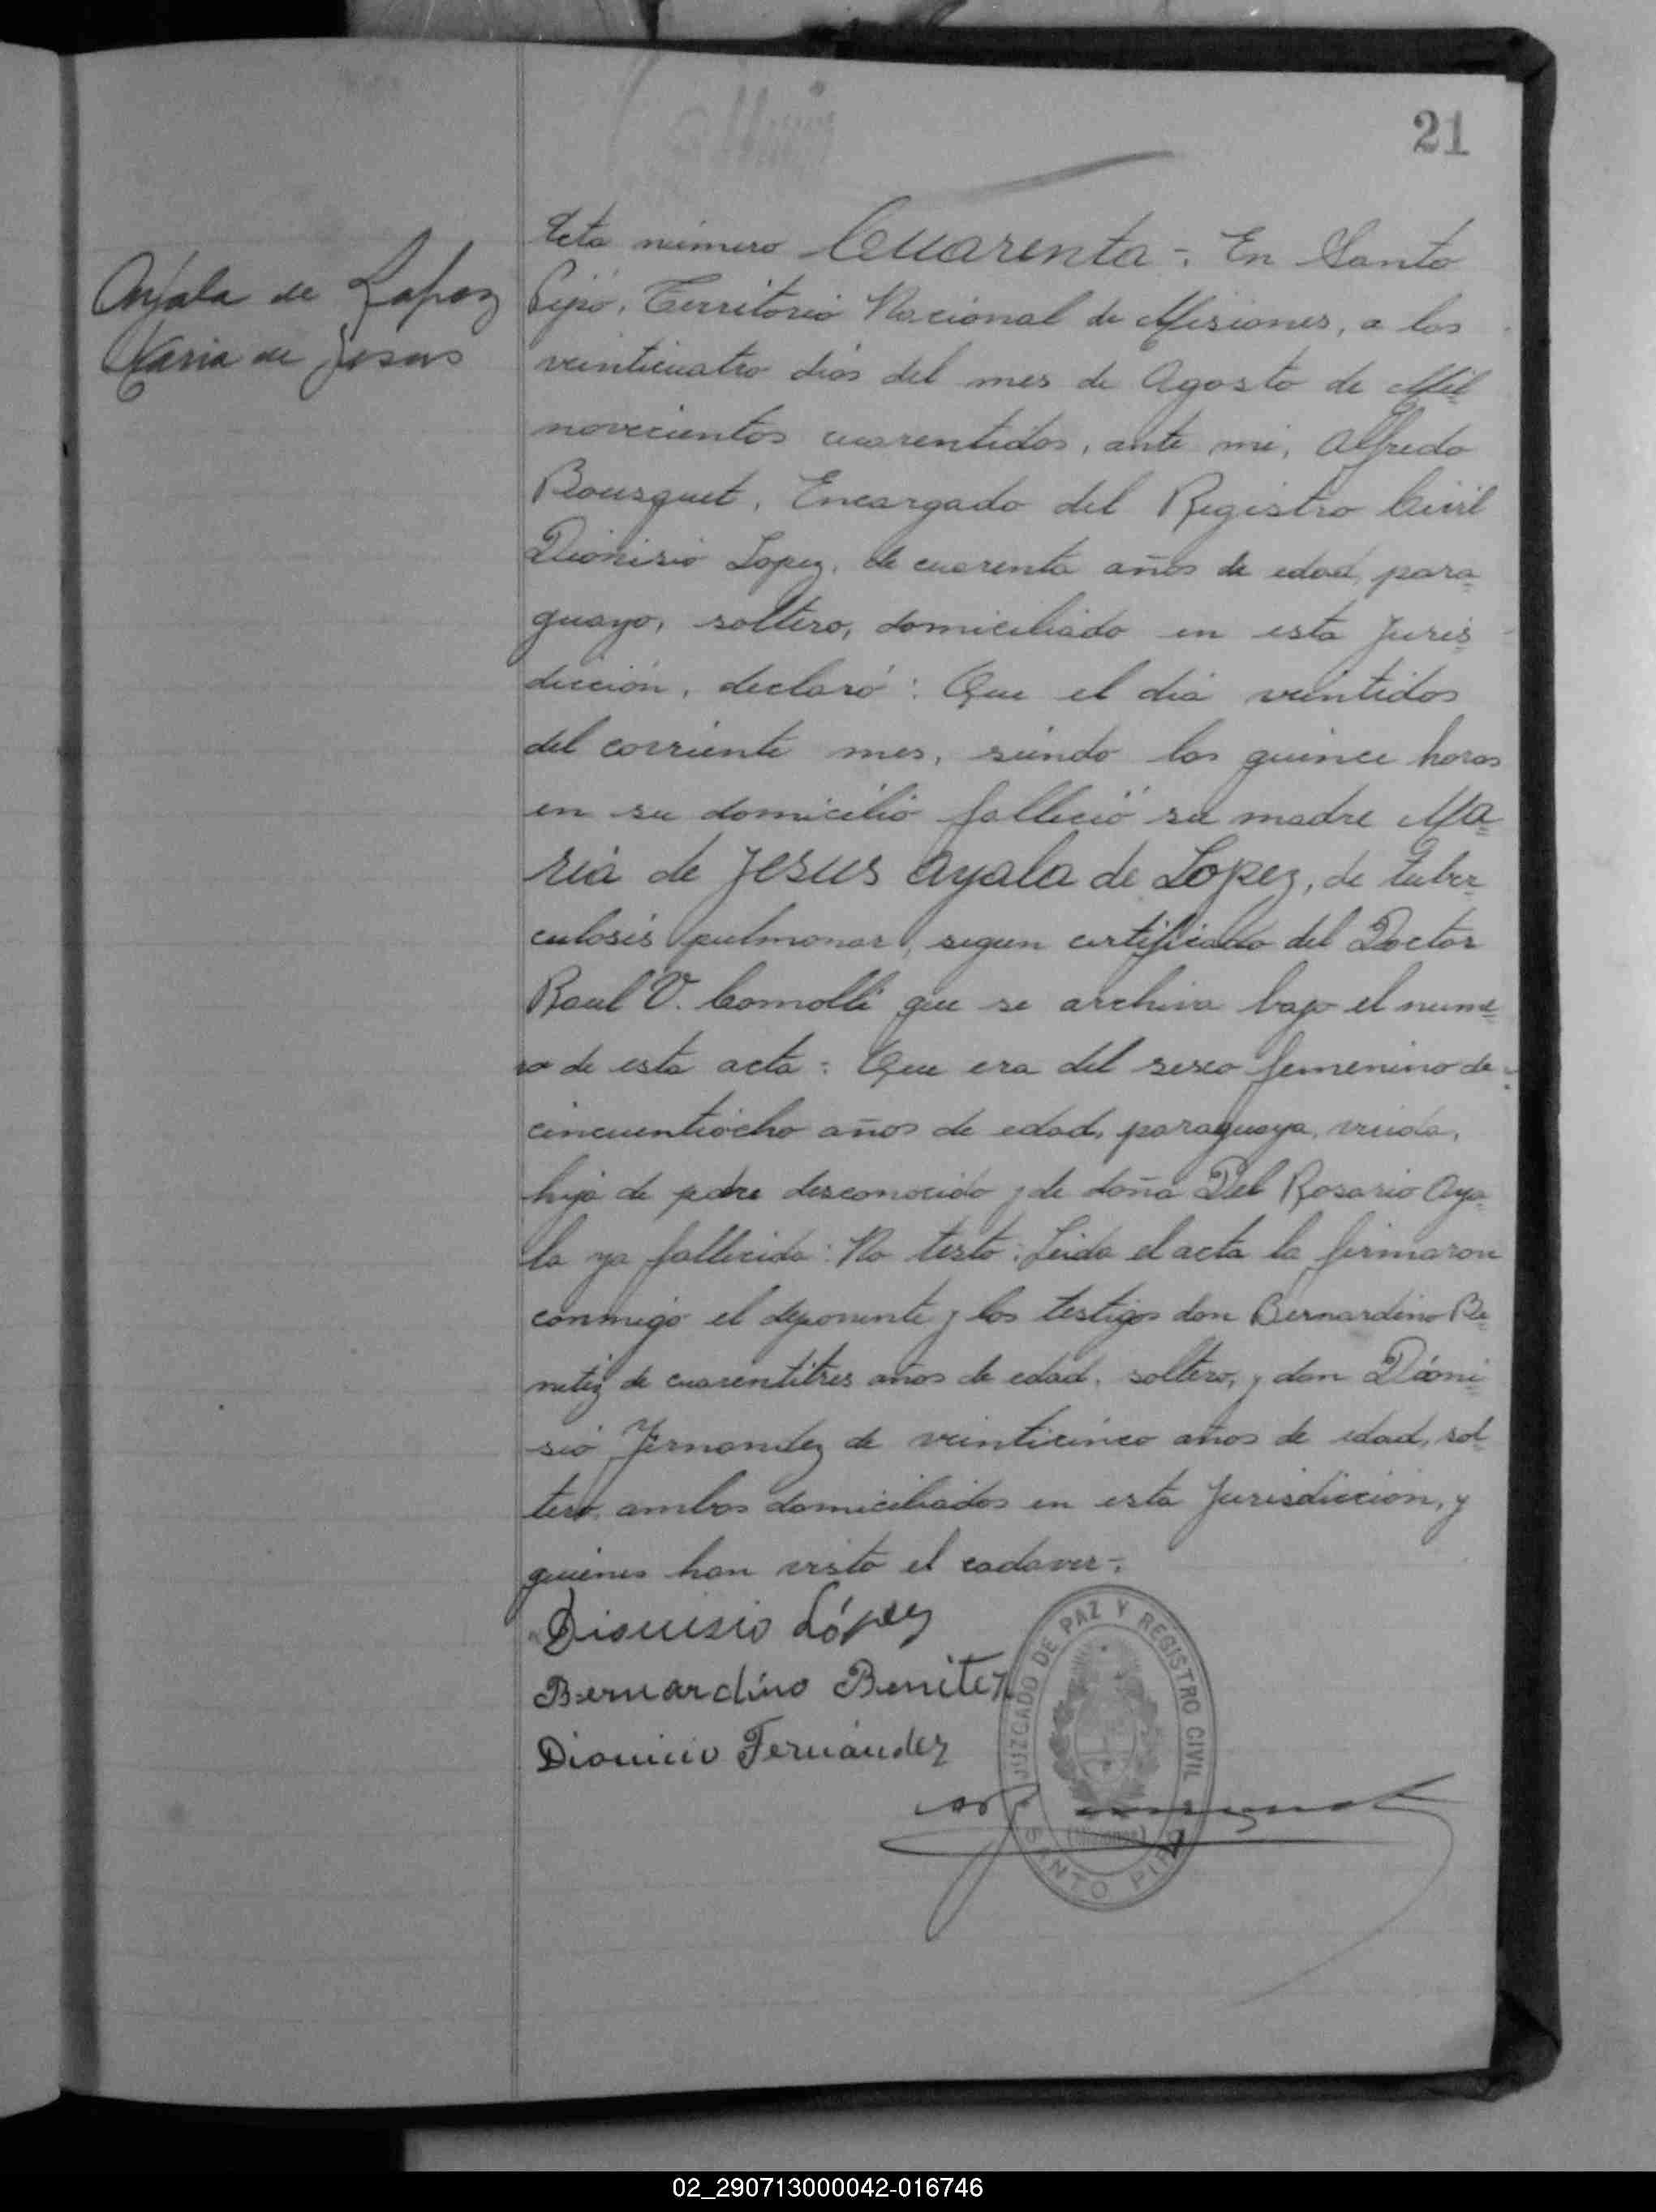 21
Ayala de Lopez
Maria de Jesus
Acta número Cuarenta-: En Santo
Pipó, Territorio Nacional de Misiones, a los
veinticuatro dias del mes de Agosto de Mil
novecientos cuarentidos, ante mi, Alfredo
Bousquet, Encargado del Registro Civil
Dionisio Lopez, de cuarenta años de edad, para-
guayo, soltero, domiciliado en esta Juris-
dicción, declaró: Que el dia veintidos
del corriente mes, siendo las quince horas
en su domicilio falleció su madre Ma-
ria de Jesus Ayala de Lopez, de tuber-
culosis pulmonar, segun certificado del Doctor
Raul V. Comolli que se archiva bajo el nume-
ro de esta acta: Que era del sexo femenino de
cincuentiocho años de edad, paraguaya, viuda,
hija de padre desconocido y de doña Del Rosario Aya-
la ya fallecida: No testó: Leida el acta la firmaron
conmigo el deponente y los testigos don Bernardino Be-
nitez de cuarentitres años de edad, soltero, y don Dioni-
sio Fernandez de veinticinco años de edad, sol-
tero, ambos domiciliados en esta Jurisdiccion, y
quienes han visto el cadaver-.
Dionisio López
Bernardino Benitez
Dionicio Fernández
JUZGADO DE PAZ Y REGISTRO CIVIL
(Misiones)
SANTO PIPÓ
02_290713000042-016746